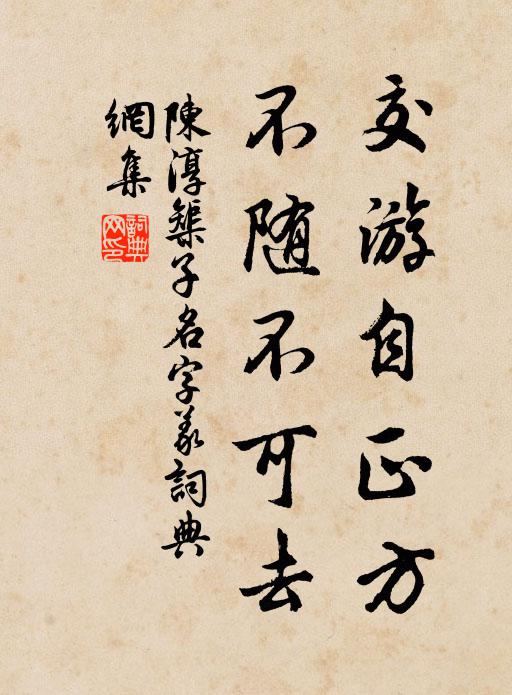 交游自正方
不随不可去
陳淳榘子名字義詞典
網集
詞典網印